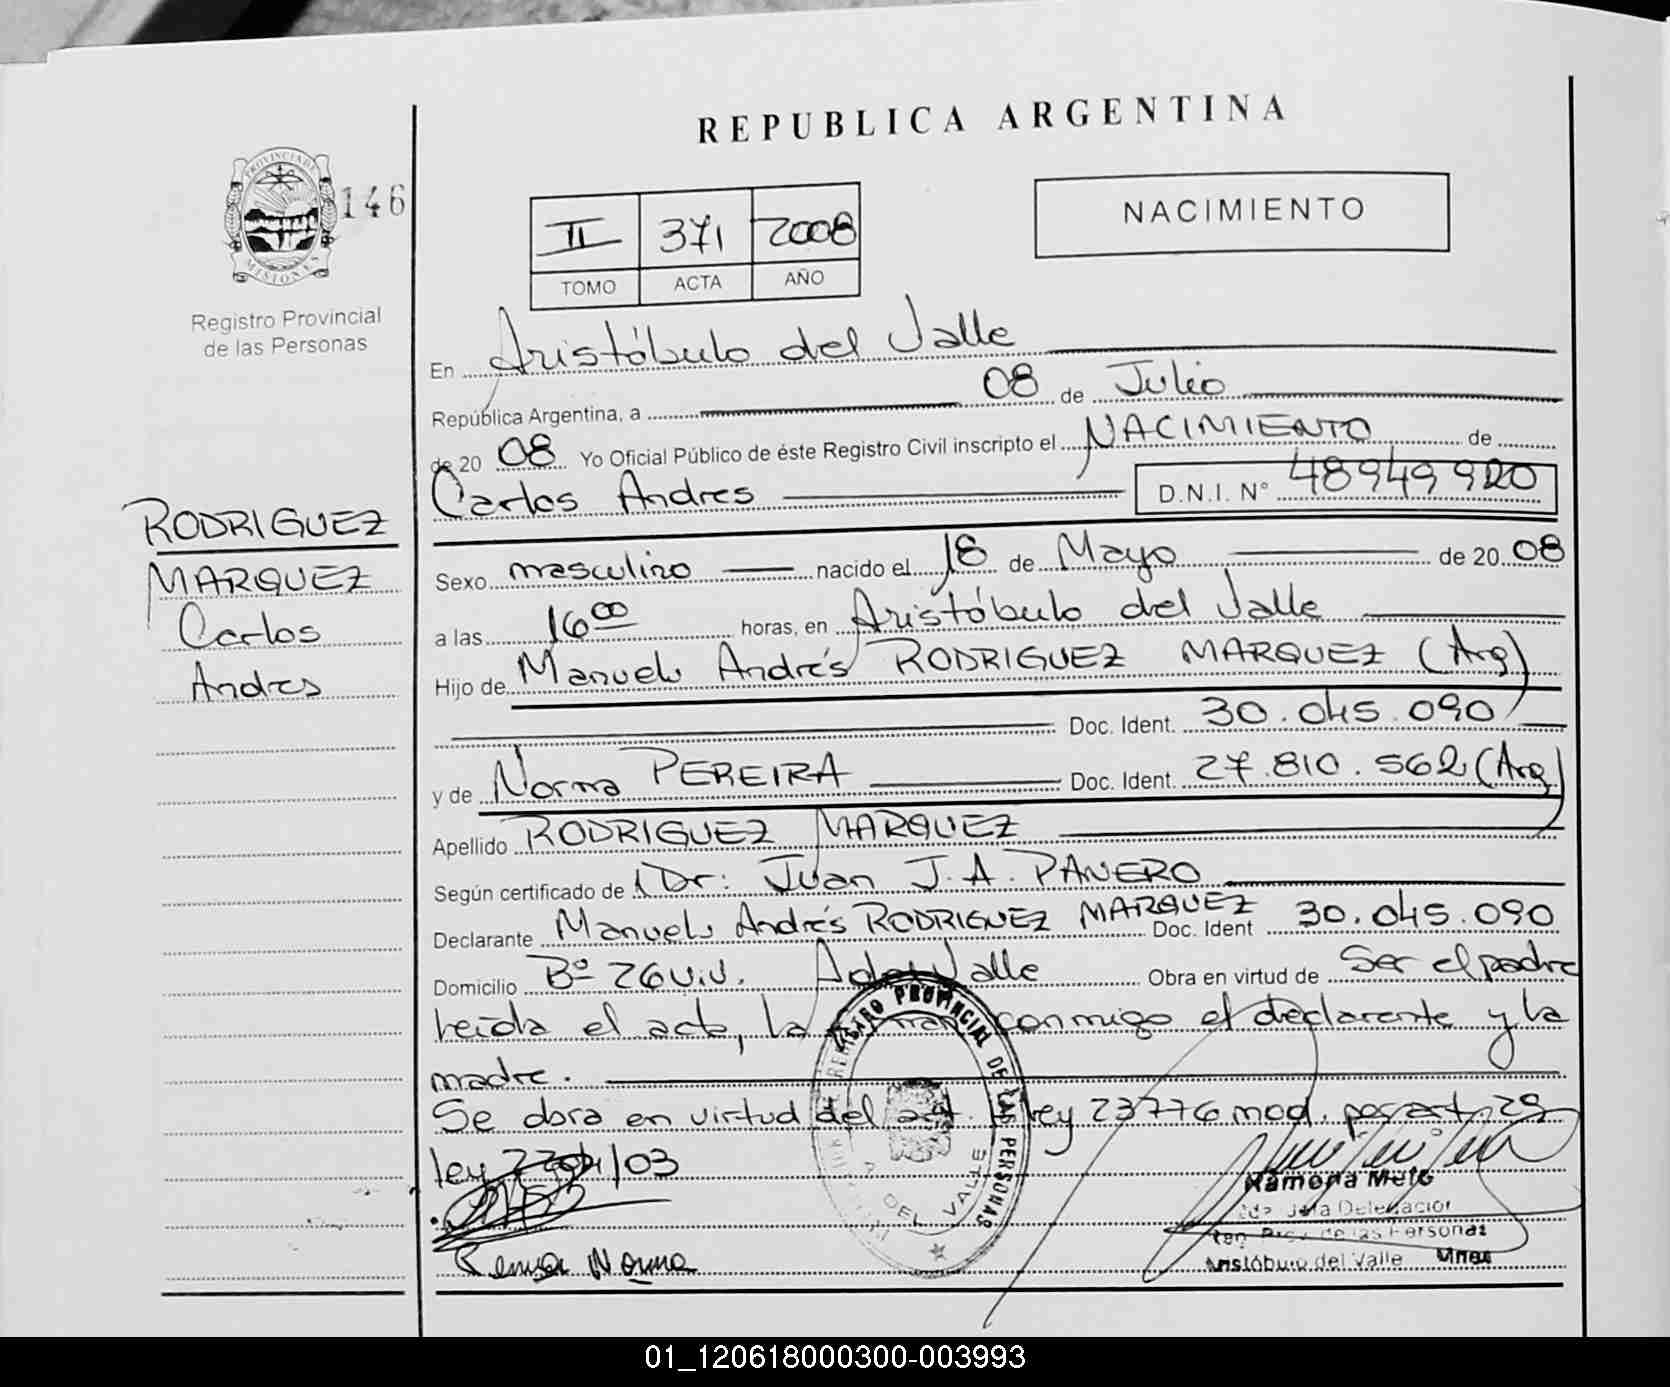 REPUBLICA ARGENTINA
PROVINCIA DE MISIONES
146
Registro Provincial
de las Personas
II 371 2008
TOMO ACTA AÑO
NACIMIENTO
En Aristóbulo del Valle
República Argentina, a 08 de Julio
de 20 08 Yo Oficial Público de éste Registro Civil inscripto el NACIMIENTO de
Carlos Andres D.N.I. Nº 48949920
RODRIGUEZ
MARQUEZ
Carlos
Andres
Sexo masculino nacido el 18 de Mayo de 20 08
a las 16 00 horas, en Aristóbulo del Valle
Hijo de Manuel Andrés RODRIGUEZ MARQUEZ (Arg)
Doc. Ident. 30.045.090
y de Norma PEREIRA Doc. Ident. 27.810.562 (Arg)
Apellido RODRIGUEZ MARQUEZ
Según certificado de Dr: Juan J.A. PANERO
Declarante Manuel Andrés RODRIGUEZ MARQUEZ Doc. Ident 30.045.090
Domicilio Bº 26 Viv. A del Valle Obra en virtud de Ser el padre
leída el acta, la firman conmigo el declarante y la
madre.
Se obra en virtud del art. ley 23776 mod. por art. 29
ley /03
REGISTRO PROVINCIAL DE LAS PERSONAS
DEL VALLE
Ramona Melo
Jefa Delegación
Reg. Prov. de las Personas
Aristóbulo del Valle Mnes
Pereira Norma
01_120618000300-003993